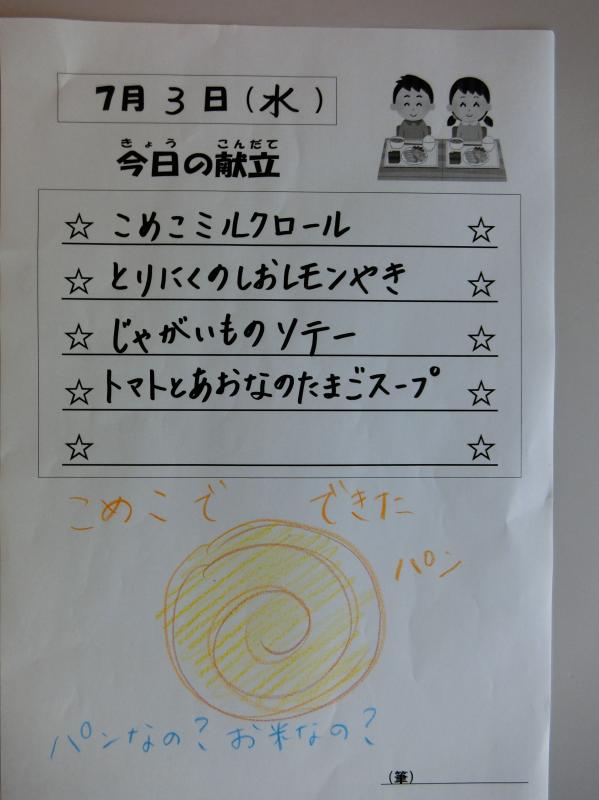 7月 3 日(水)
きょう こんだて
今日の献立
☆ こめこミルクロール ☆
☆ とりにくのしおレモンやき ☆
☆ じゃがいものソテー ☆
☆ トマトとあおなのたまごスープ ☆
☆ ☆
こめこで できた
パン
パンなの?お米なの?
(筆)